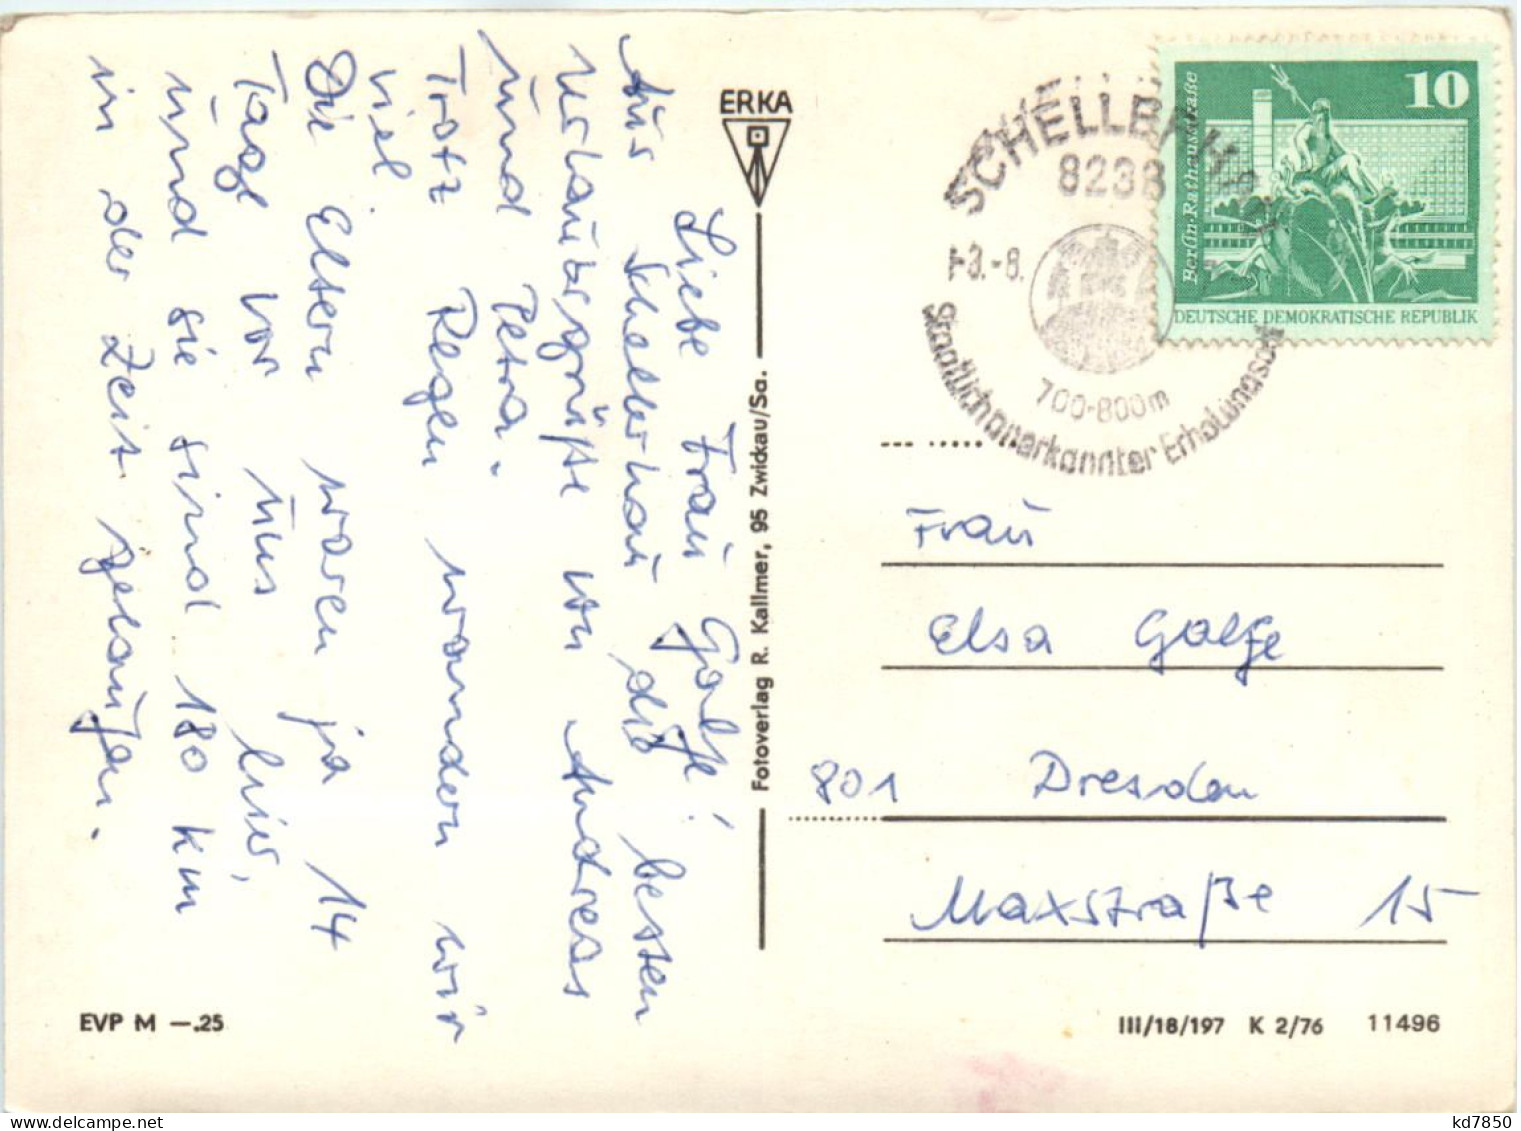 Liebe Frau Golfe!
Aus Schellerhau die besten
Urlaubsgrüße von Andreas
und Petra.
Trotz Regen wandern wir
viel
Die Eltern waren ja 14
Tage vor uns hier,
und sie sind 180 km
in der Zeit gelaufen.
ERKA
Fotoverlag R. Kallmer, 95 Zwickau/Sa.
EVP M —.25
10
Berlin-Rathausstraße
DEUTSCHE DEMOKRATISCHE REPUBLIK
SCHELLERHAU
8238
-3.-8.
700-800m
Staatlich anerkannter Erholungsort
Frau
Elsa Golfe
801 Dresden
Maxstraße 15
III/18/197 K 2/76 11496
kd7850